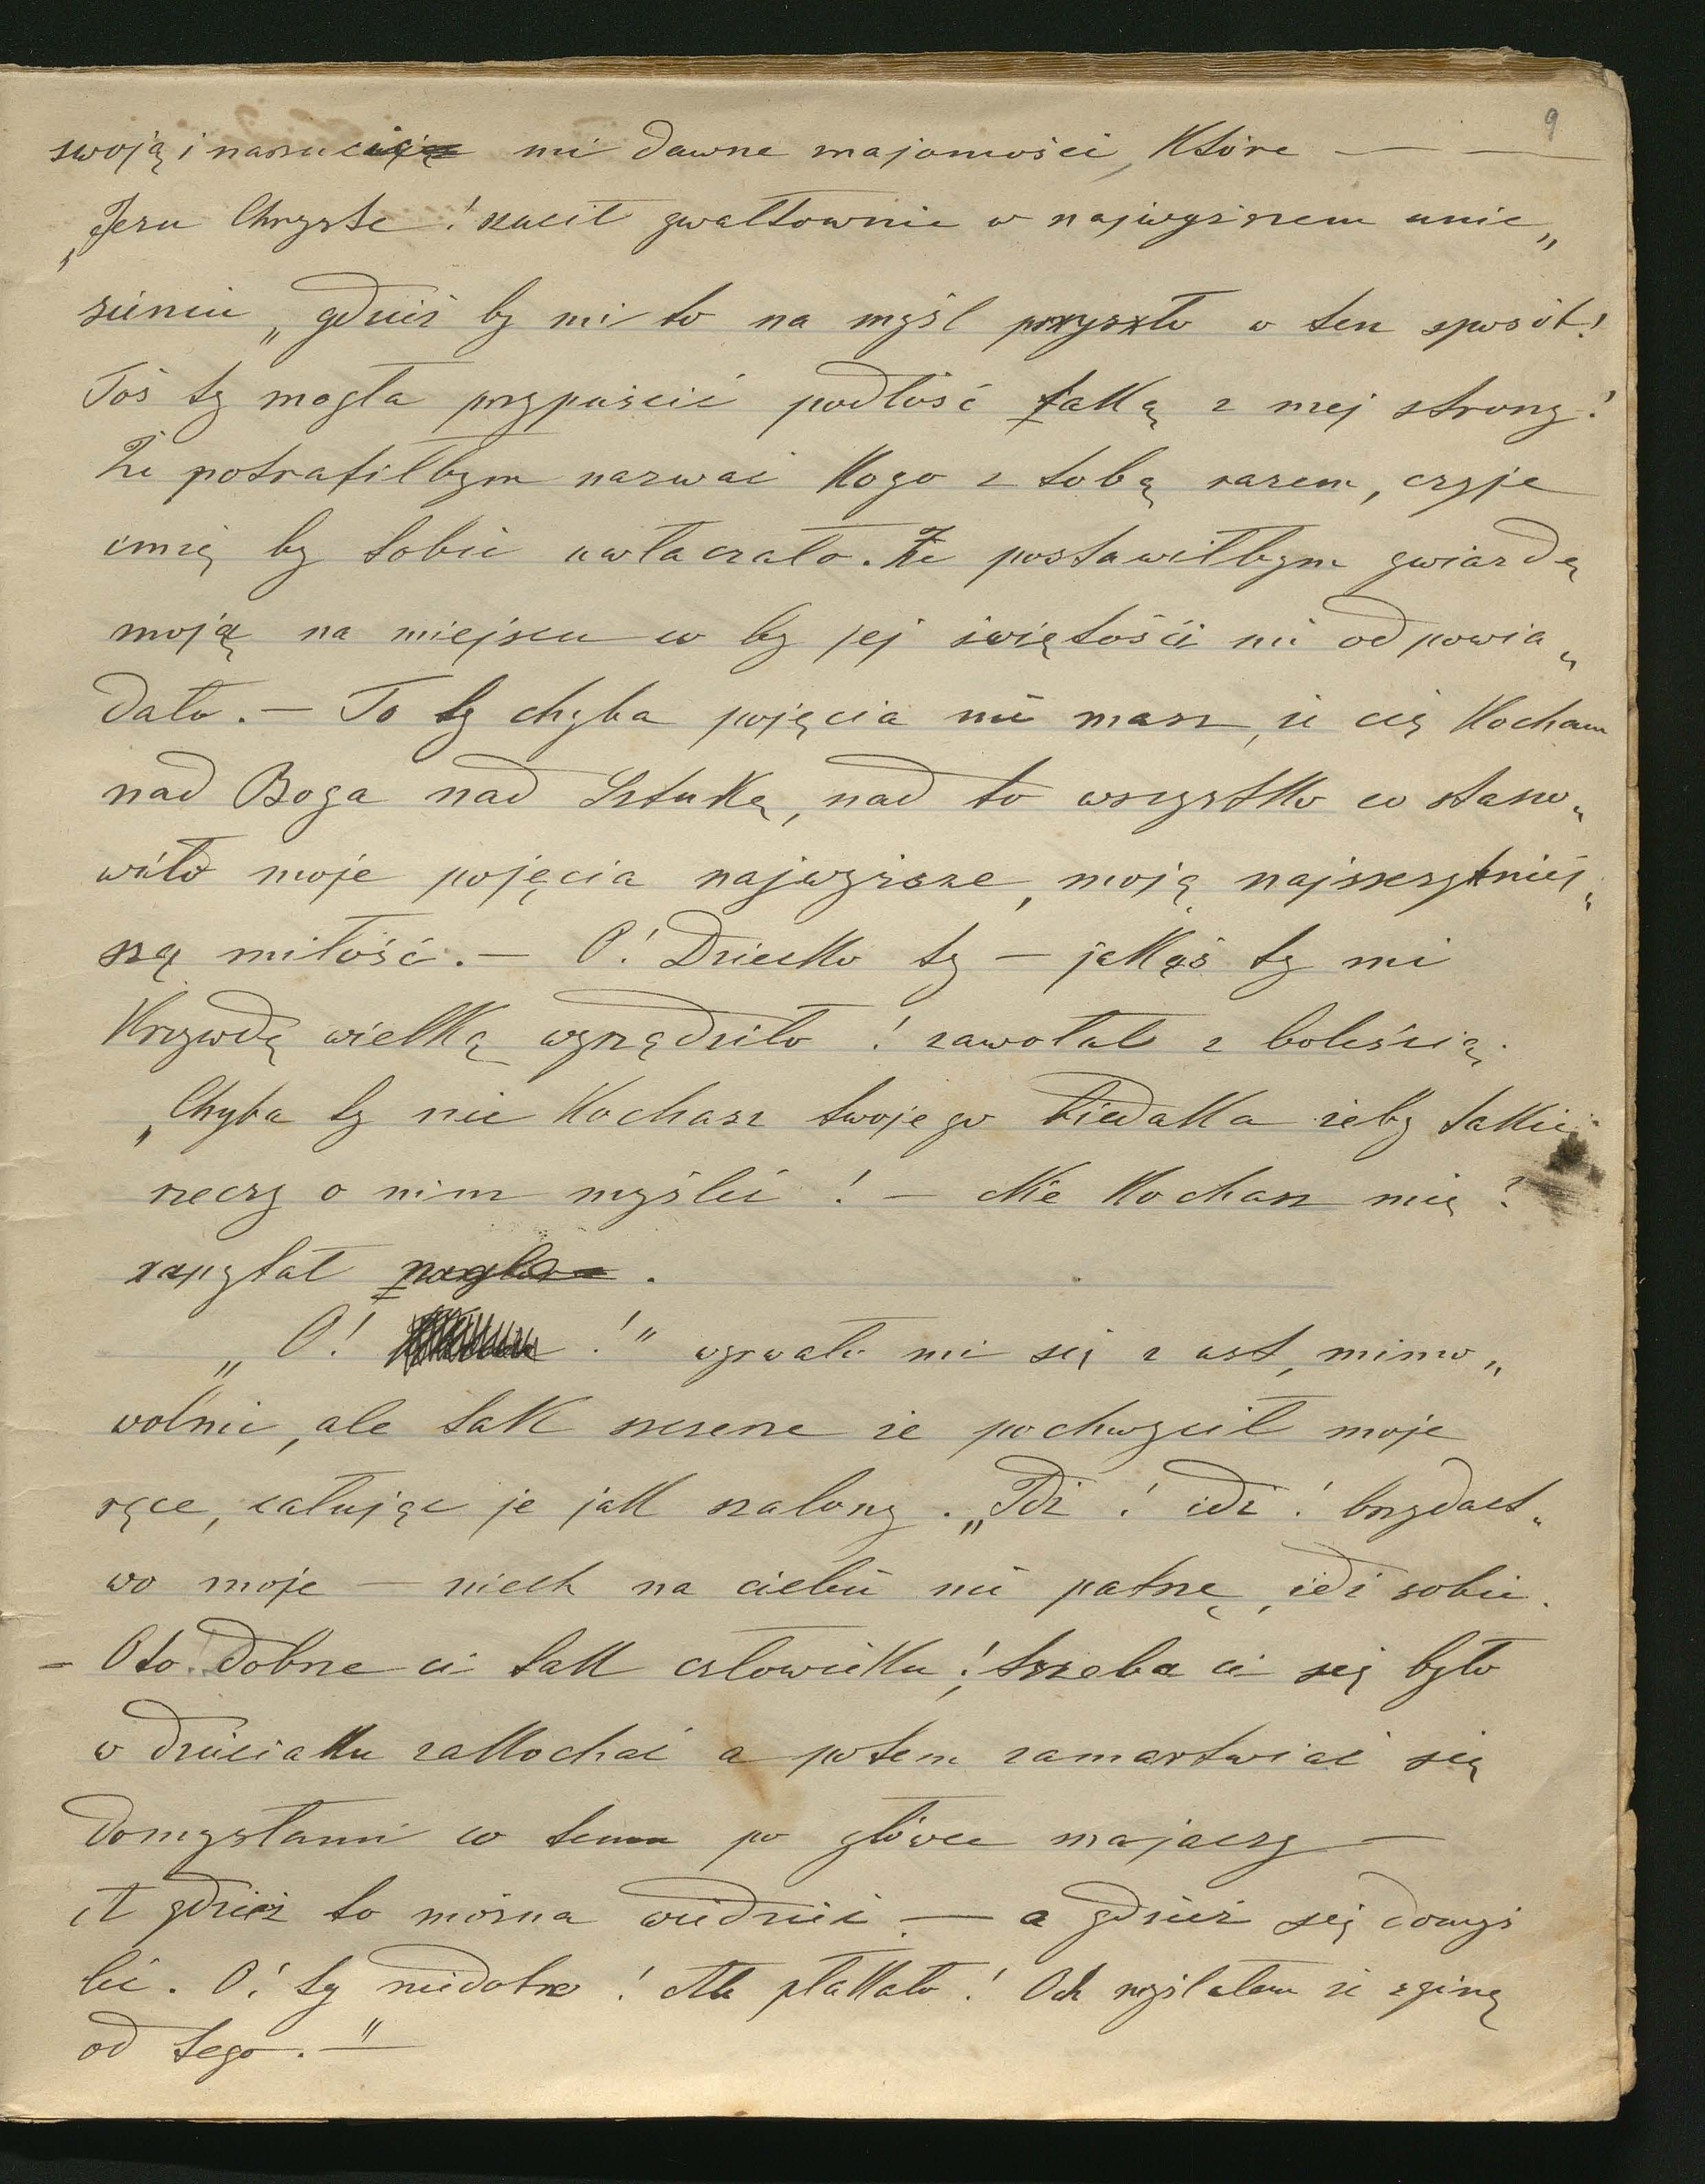 9
swoją i narzuci mi dawne znajomości, które — —
„Jezu Chryste! rzucił gwałtownie w najwyższem unie„
sieniu „gdzież by mi to na myśl przyszło w ten sposób!
Toś ty mogła przypuścić podłość taką z mej strony!
Że potrafiłbym nazwać kogo z tobą razem, czyje
imię by tobie uwłaczało. Że postawiłbym gwiazdę
moją na miejscu co by jej świętości nie odpowia„
dało. — To ty chyba pojęcia nie masz, że cię kocham
nad Boga nad Sztukę, nad to wszystko co stano„
wiło moje pojęcia najwyższe, moją najszczytniej„
szą miłość. — O! Dziecko ty — jakąś ty mi
krzywdę wielką wyrządziło! zawołał z boleścią.
„Chyba ty nie kochasz twojego biedaka żeby takie
rzeczy o nim myśleć! — Nie kochasz mię?
zapytał nagle.
„O! !" wyrwało mi się z ust, mimo„
wolnie, ale tak szczere że pochwycił moje
ręce, całując je jak szalony. „Idź! idź! brzydact„
wo moje — niech na ciebie nie patrzę, idź sobie.
— Oto! dobrze ci tak człowieku! trzeba ci się było
w dzieciaku zakochać a potem zamartwiać się
domysłami co temu po główce majaczy —
A gdzież to można widzieć — a gdzież się domyś
leć. O! ty niedobre! Ale płakało! Och myślałem że zginę
od tego." —